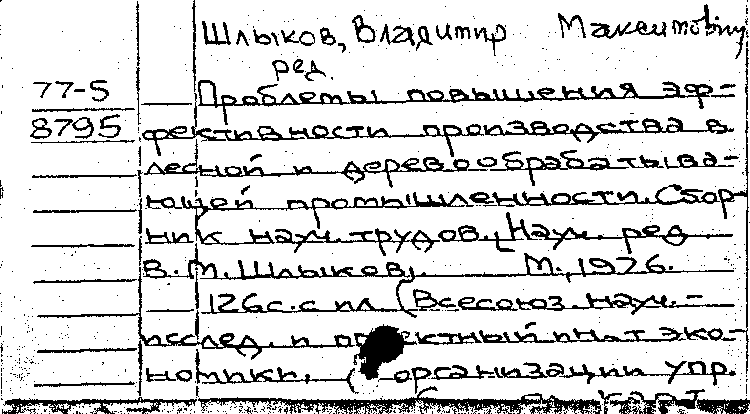 Шлыков, Владимир Максимович
ред.
77-5 Проблемы повышения эф-
8795 фективности производства в
лесной и деревообрабатыва-
ющей промышленности. Сбор-
ник науч. трудов. [Науч. ред.
В.М. Шлыков]. М., 1976.
126с. с ил (Всесоюз. науч.-
исслед. и проектный ин-т эко-
номики, организации упр.